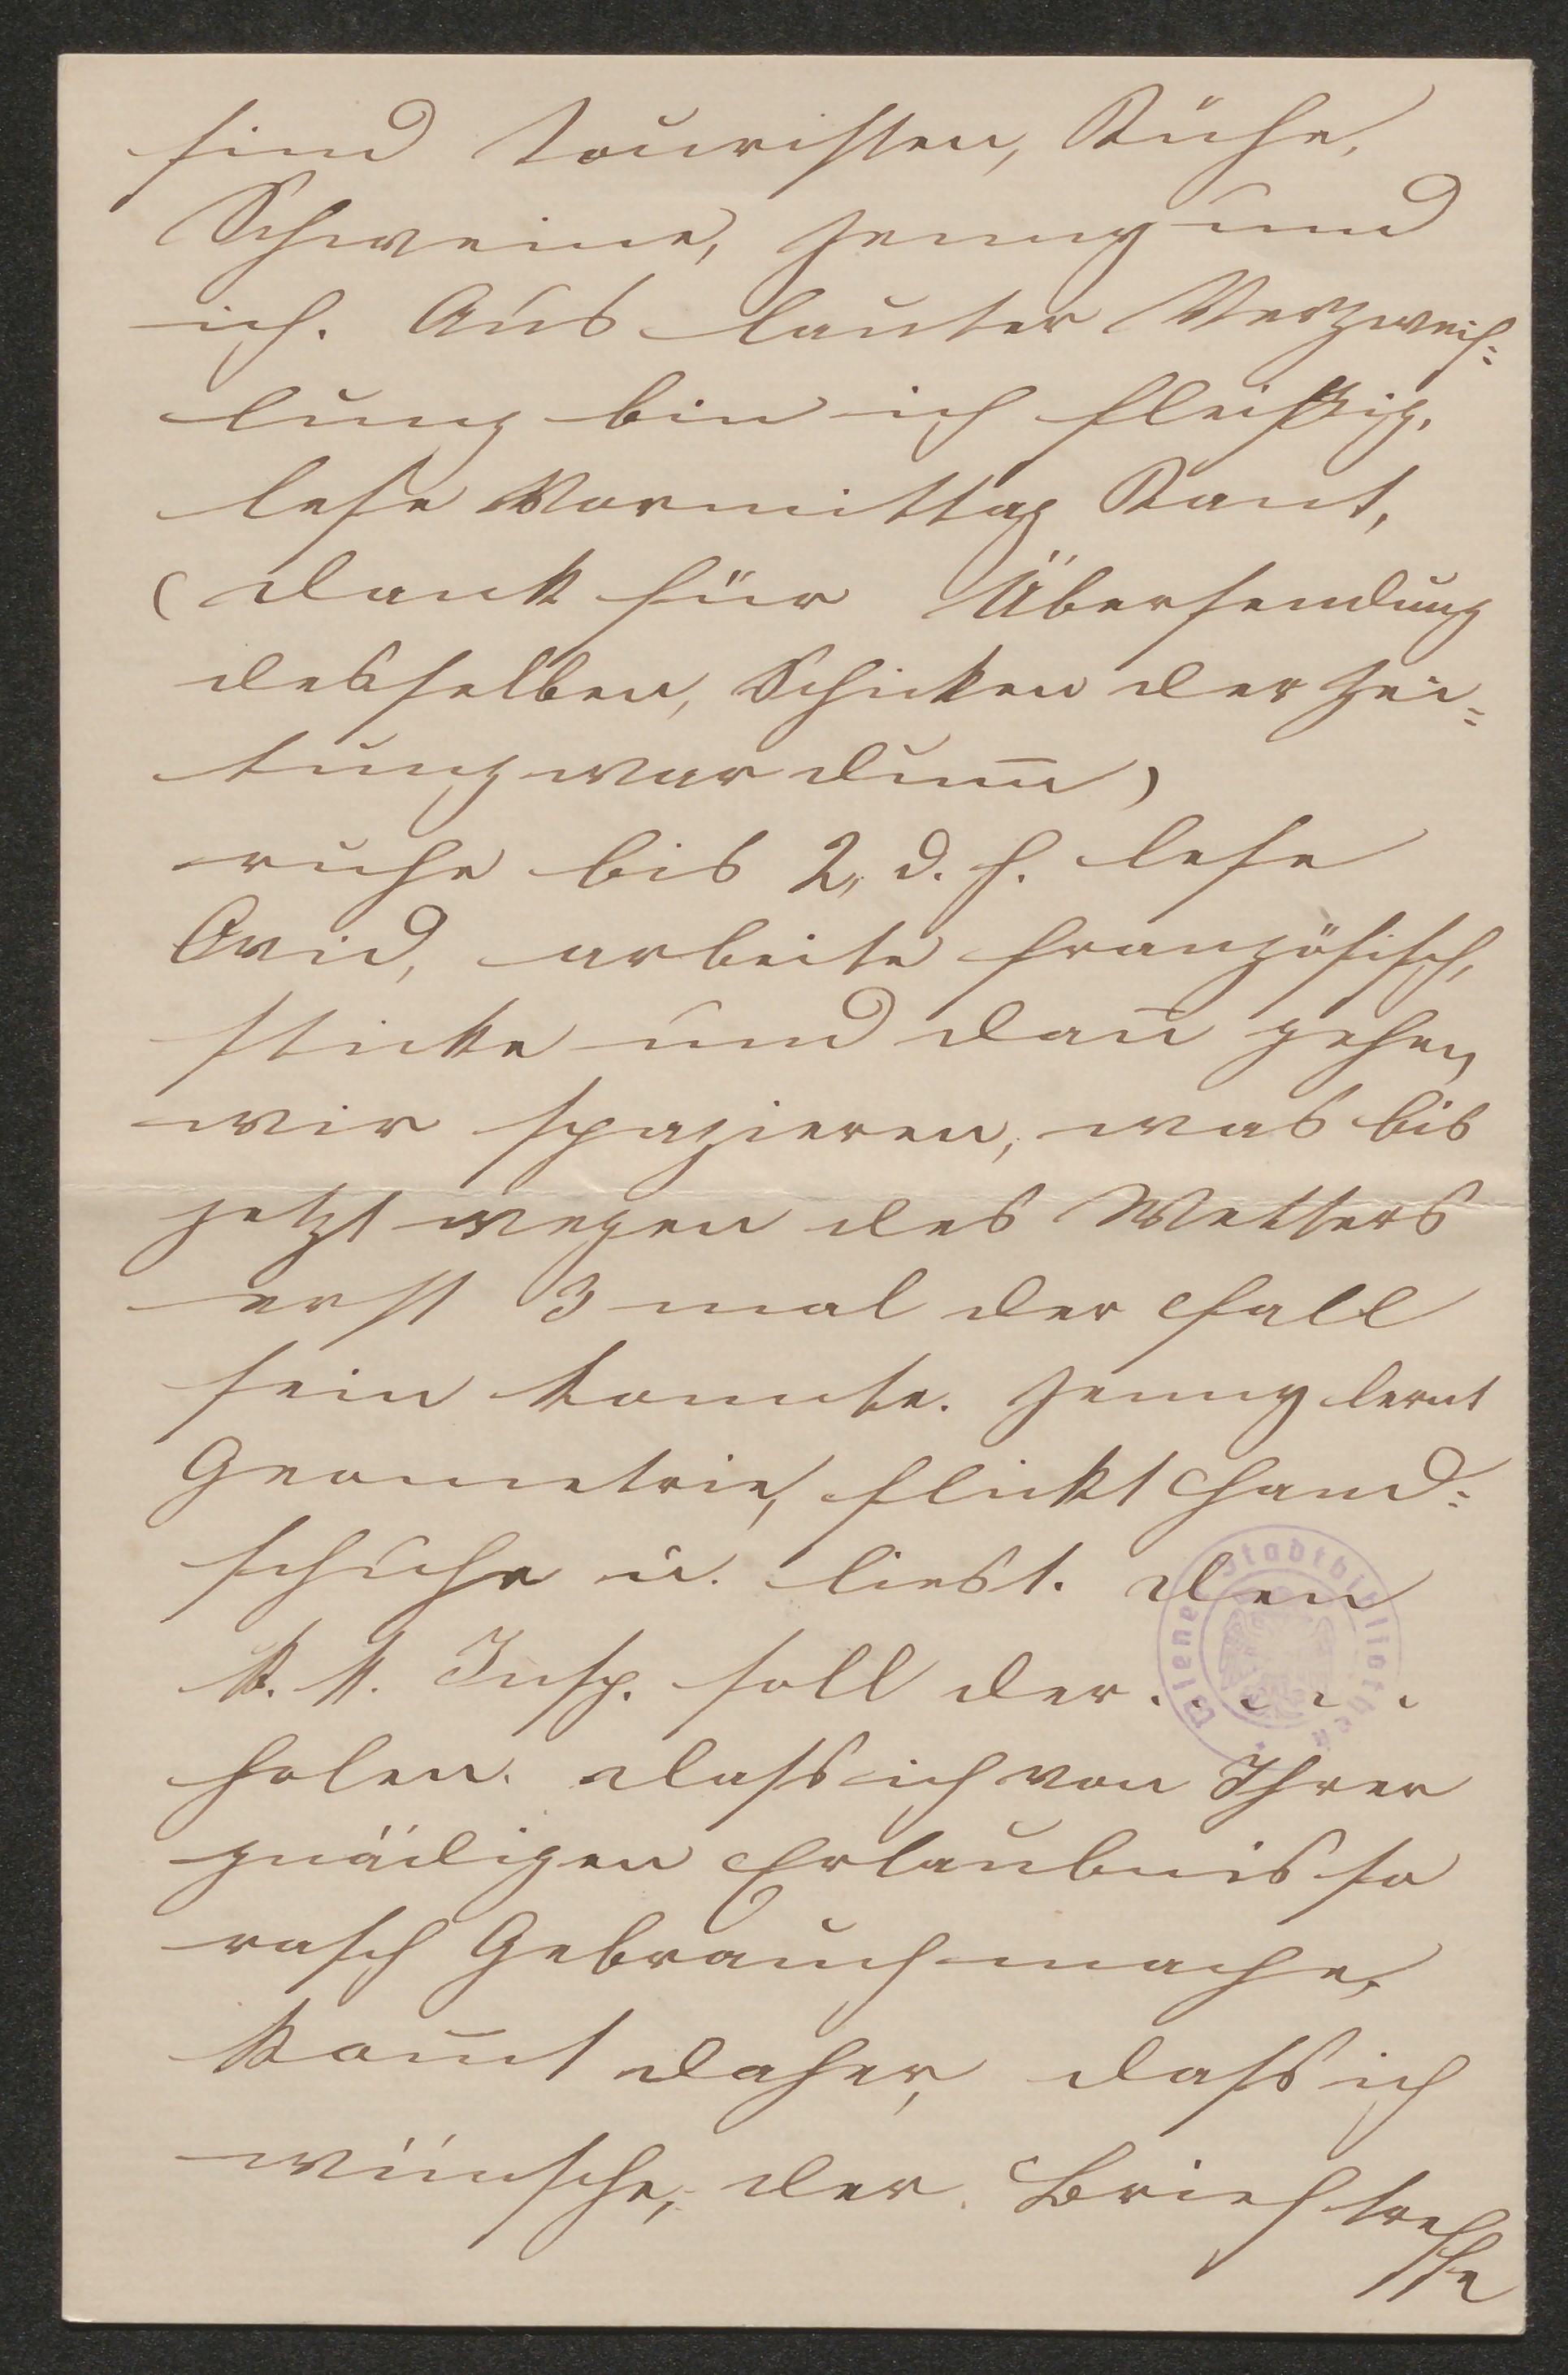 sind Touristen, Kühe,
Schweine, Jenny und
ich. Aus lauter Verzweif=
lung bin ich fleißig,
lese Vormittag Kant,
(Dank für Übersendung
desselben, Schicken der Zei=
tung war dum̅)
ruhe bis 2, d. h. lese
Ovid, arbeite französisch,
sticke und dan̅ gehen
wir spazieren, was bis
jetzt wegen des Wetters
erst 3 mal der Fall
sein konnte. Jenny lernt
Geometrie, flickt Hand=
schuhe u. liest. Den
k. k. Insp. soll der . . . . .
holen. Dass ich von Ihrer
gnädigen Erlaubnis so
rasch Gebrauch mache,
kom̅t daher, dass ich
wünsche, der Brief treffe
Wiener Stadtbibliothek